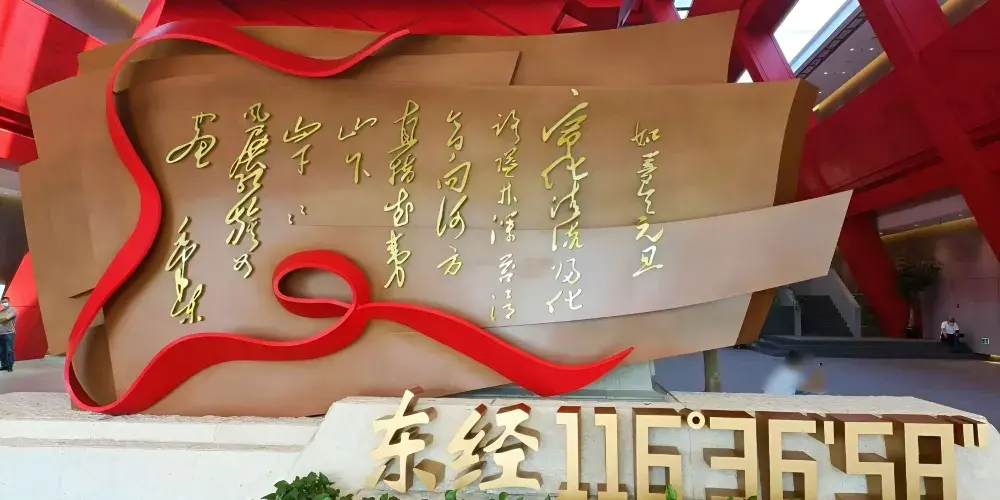 如梦令元旦
宁化清流归化
路隘林深苔滑
今日向何方
直指武夷
山下
山下〻
风展红旗如
画
毛泽东
东经116°36'58"